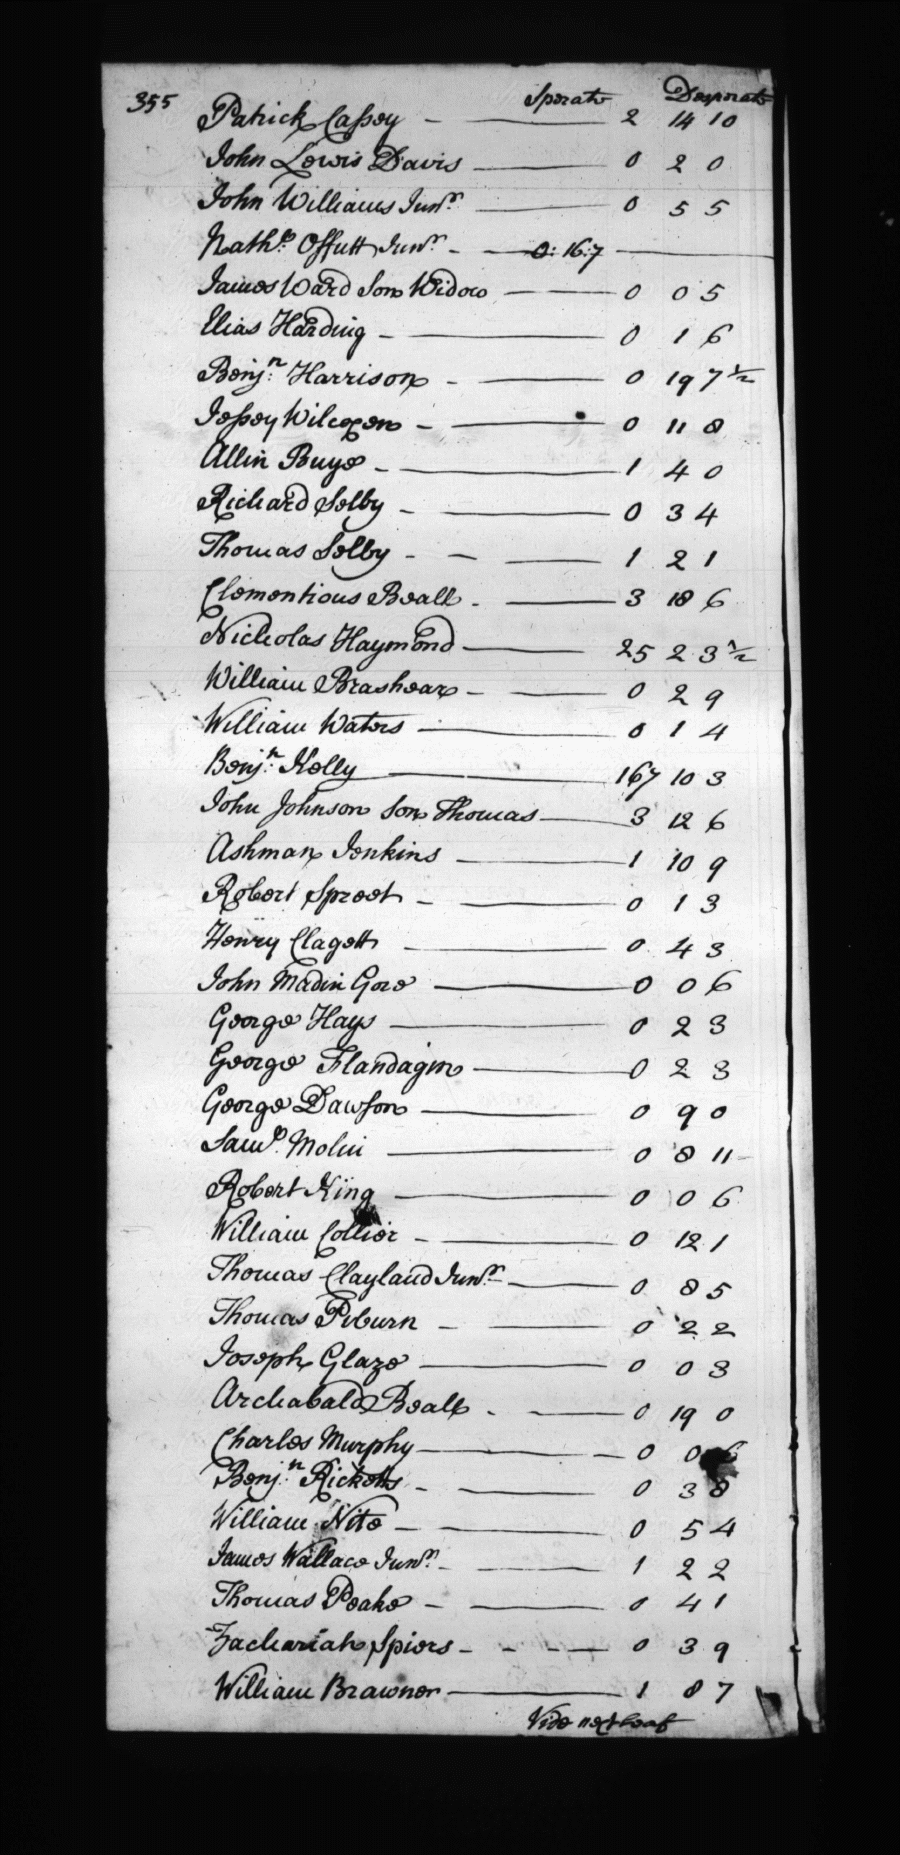 355 Sperate Desperate
Patrick Cassey - — 2 14 10
John Lewis Davis — 0 2 0
John Williams Junr. — 0 5 5
Nathl. Offutt Junr. - — 0: 16: 7 —
James Ward Son Widow — 0 0 5
Elias Harding - — 0 1 6
Benjn. Harrison - — 0 19 7 1/2
Jessey Wilcoxen - — 0 11 8
Allin Buye - — 1 4 0
Richard Selby - — 0 3 4
Thomas Selby - - — 1 2 1
Clementious Beall - — 3 18 6
Nicholas Haymond — 25 2 3 1/2
William Brashears - — 0 2 9
William Waters — 0 1 4
Benjn. Kelly — 167 10 3
John Johnson Son Thomas — 3 12 6
Ashman Jenkins — 1 10 9
Robert Spreet - — 0 1 3
Henry Clagett — 0 4 3
John Madin Gore — 0 0 6
George Hays — 0 2 3
George Flandagin — 0 2 3
George Dawson — 0 9 0
Saml. Molin — 0 8 11
Robert King — 0 0 6
William Collier - — 0 12 1
Thomas Clayland Junr. — 0 8 5
Thomas Piburn - — 0 2 2
Joseph Glaze — 0 0 3
Archabald Beall - — 0 19 0
Charles Murphy — 0 0 6
Benjn. Ricketts - — 0 3 8
William Nite - — 0 5 4
James Wallace Junr. - — 1 2 2
Thomas Peake - — 0 4 1
Zachariah Spiers - - - — 0 3 9
William Brawner — 1 8 7
Vide next leaf